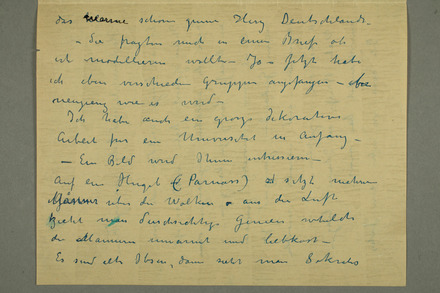 das schöne grüne Herz Deutschlands.
– Sie fragten mich in einem Brief ob
ich modellieren wollte. Ja – jetzt habe
ich eben verschiedene Gruppen angefangen –
neugierig wie es wird –
Ich habe auch ein gross dekorative
Arbeit für ein Universität in Anfang –
– Ein Bild wird Ihnen interessieren –
Auf ein Hügel (Parnass) sitzt
Männer über die Wolken + aus der Luft
sieht man durchsichtige Genien
die Männern umarmt und liebkost –
Es sind alte Ibsen, dann sieht man Sokrates